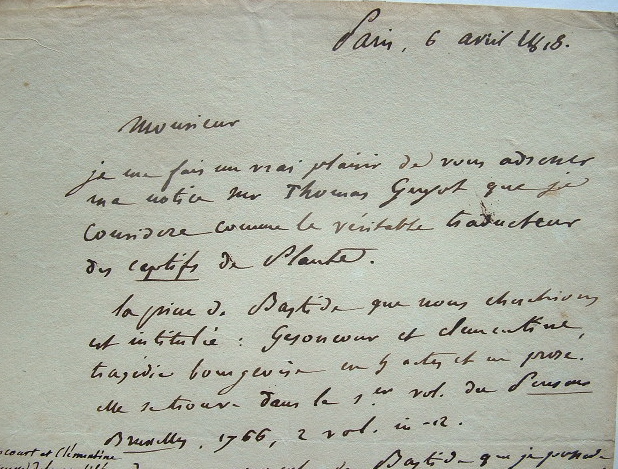 Paris, 6 avril 1818.
Monsieur
je me fais un vrai plaisir de vous adresser
ma notice sur Thomas Guyot que je
considere comme le véritable traducteur
des captifs de Plaute.
la piece de Bastide que nous cherchions
est intitulée : Gesoncour et Clementine,
tragédie bourgeoise en 5 actes et en prose.
elle se trouve dans le 1er vol. du Penseur
Bruxelles, 1766, 2 vol. in-12.
court et Clémentine
de Bastide que je possede